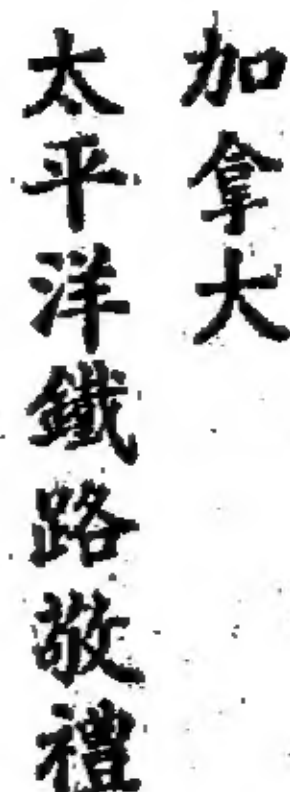 加拿大
太平洋鐵路敬禮